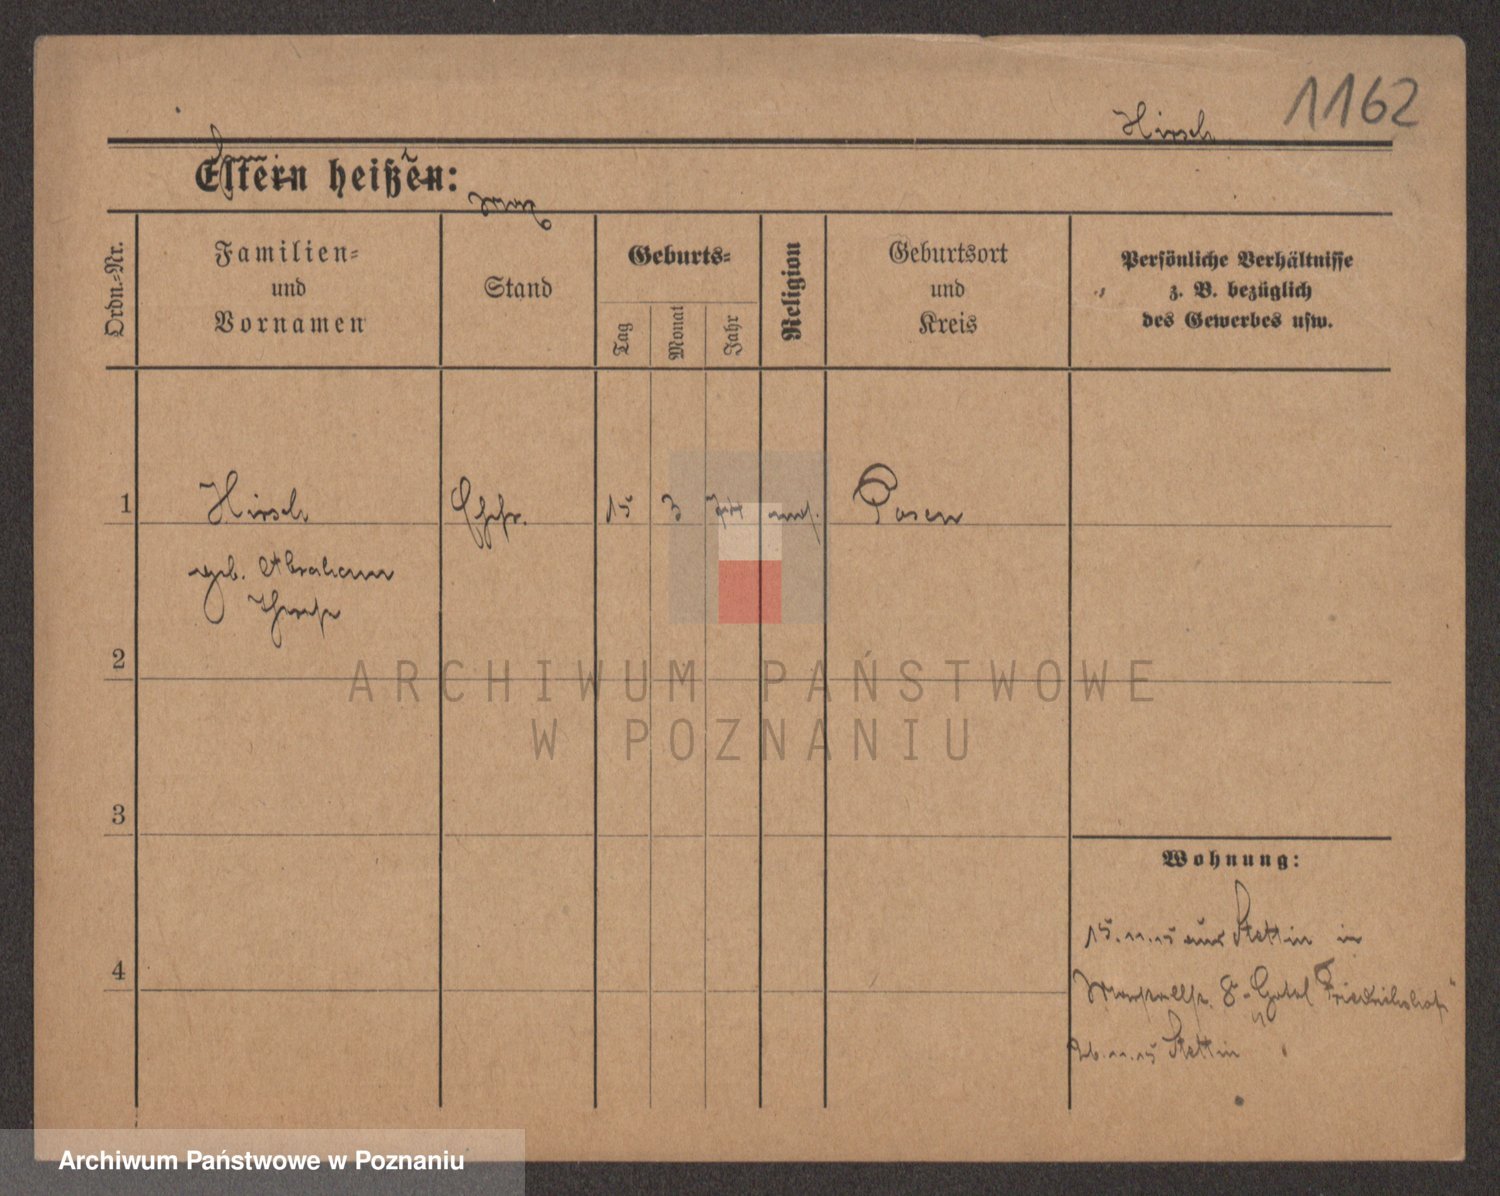 1162
Hirsch
Eltern heißen:
Max
Ordn.-Nr.
Familien-
und
Vornamen
Stand
Geburts-
Tag
Monat
Jahr
Religion
Geburtsort
und
Kreis
Persönliche Verhältnisse
z. B. bezüglich
des Gewerbes usw.
1
Hirsch
15
3
Posen
geb. Abraham
2
3
4
Wohnung:
15.11.15 aus Stettin in
8. Hotel Friedrichshof"
26.11.15 Stettin
ARCHIWUM PAŃSTWOWE
W POZNANIU
Archiwum Państwowe w Poznaniu